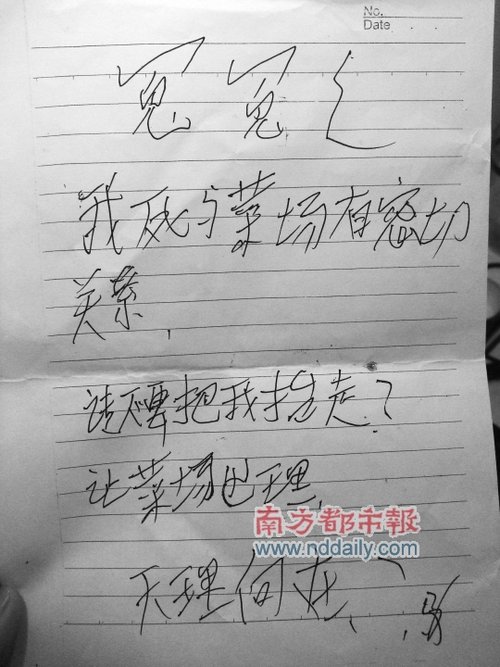 No.
Date
冤冤
我死与菜场有密切
关系.
请不要把我抬走?
让菜场处理,
南方都市報
www.nddaily.com
天理何在、